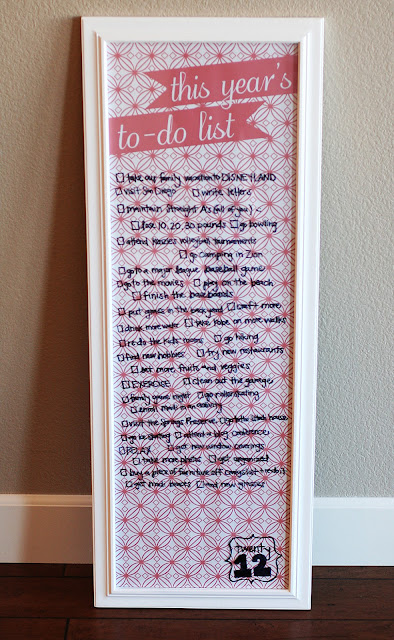 this year's
to-do list
take our family vacation to DISNEYLAND
visit San Diego write letters
maintain straight A's (all of you)
lose 10, 20, 30 pounds go bowling
attend volleyball tournaments
go camping in Zion
go to a major league baseball game
go to the movies play on the beach
finish the baseboards
put grass in the backyard craft more
drink more water take Kobe on more walks
re-do the kids' rooms go hiking
find new hobbies try new restaurants
eat more fruits and veggies
EXERCISE clean out the garage
family game night go rollerskating
visit the Springs Preserve
go ice skating attend a blog conference
RELAX get new window coverings
take more photos get organized
buy a piece of furniture off craigslist + redo it
get new glasses
twenty
12